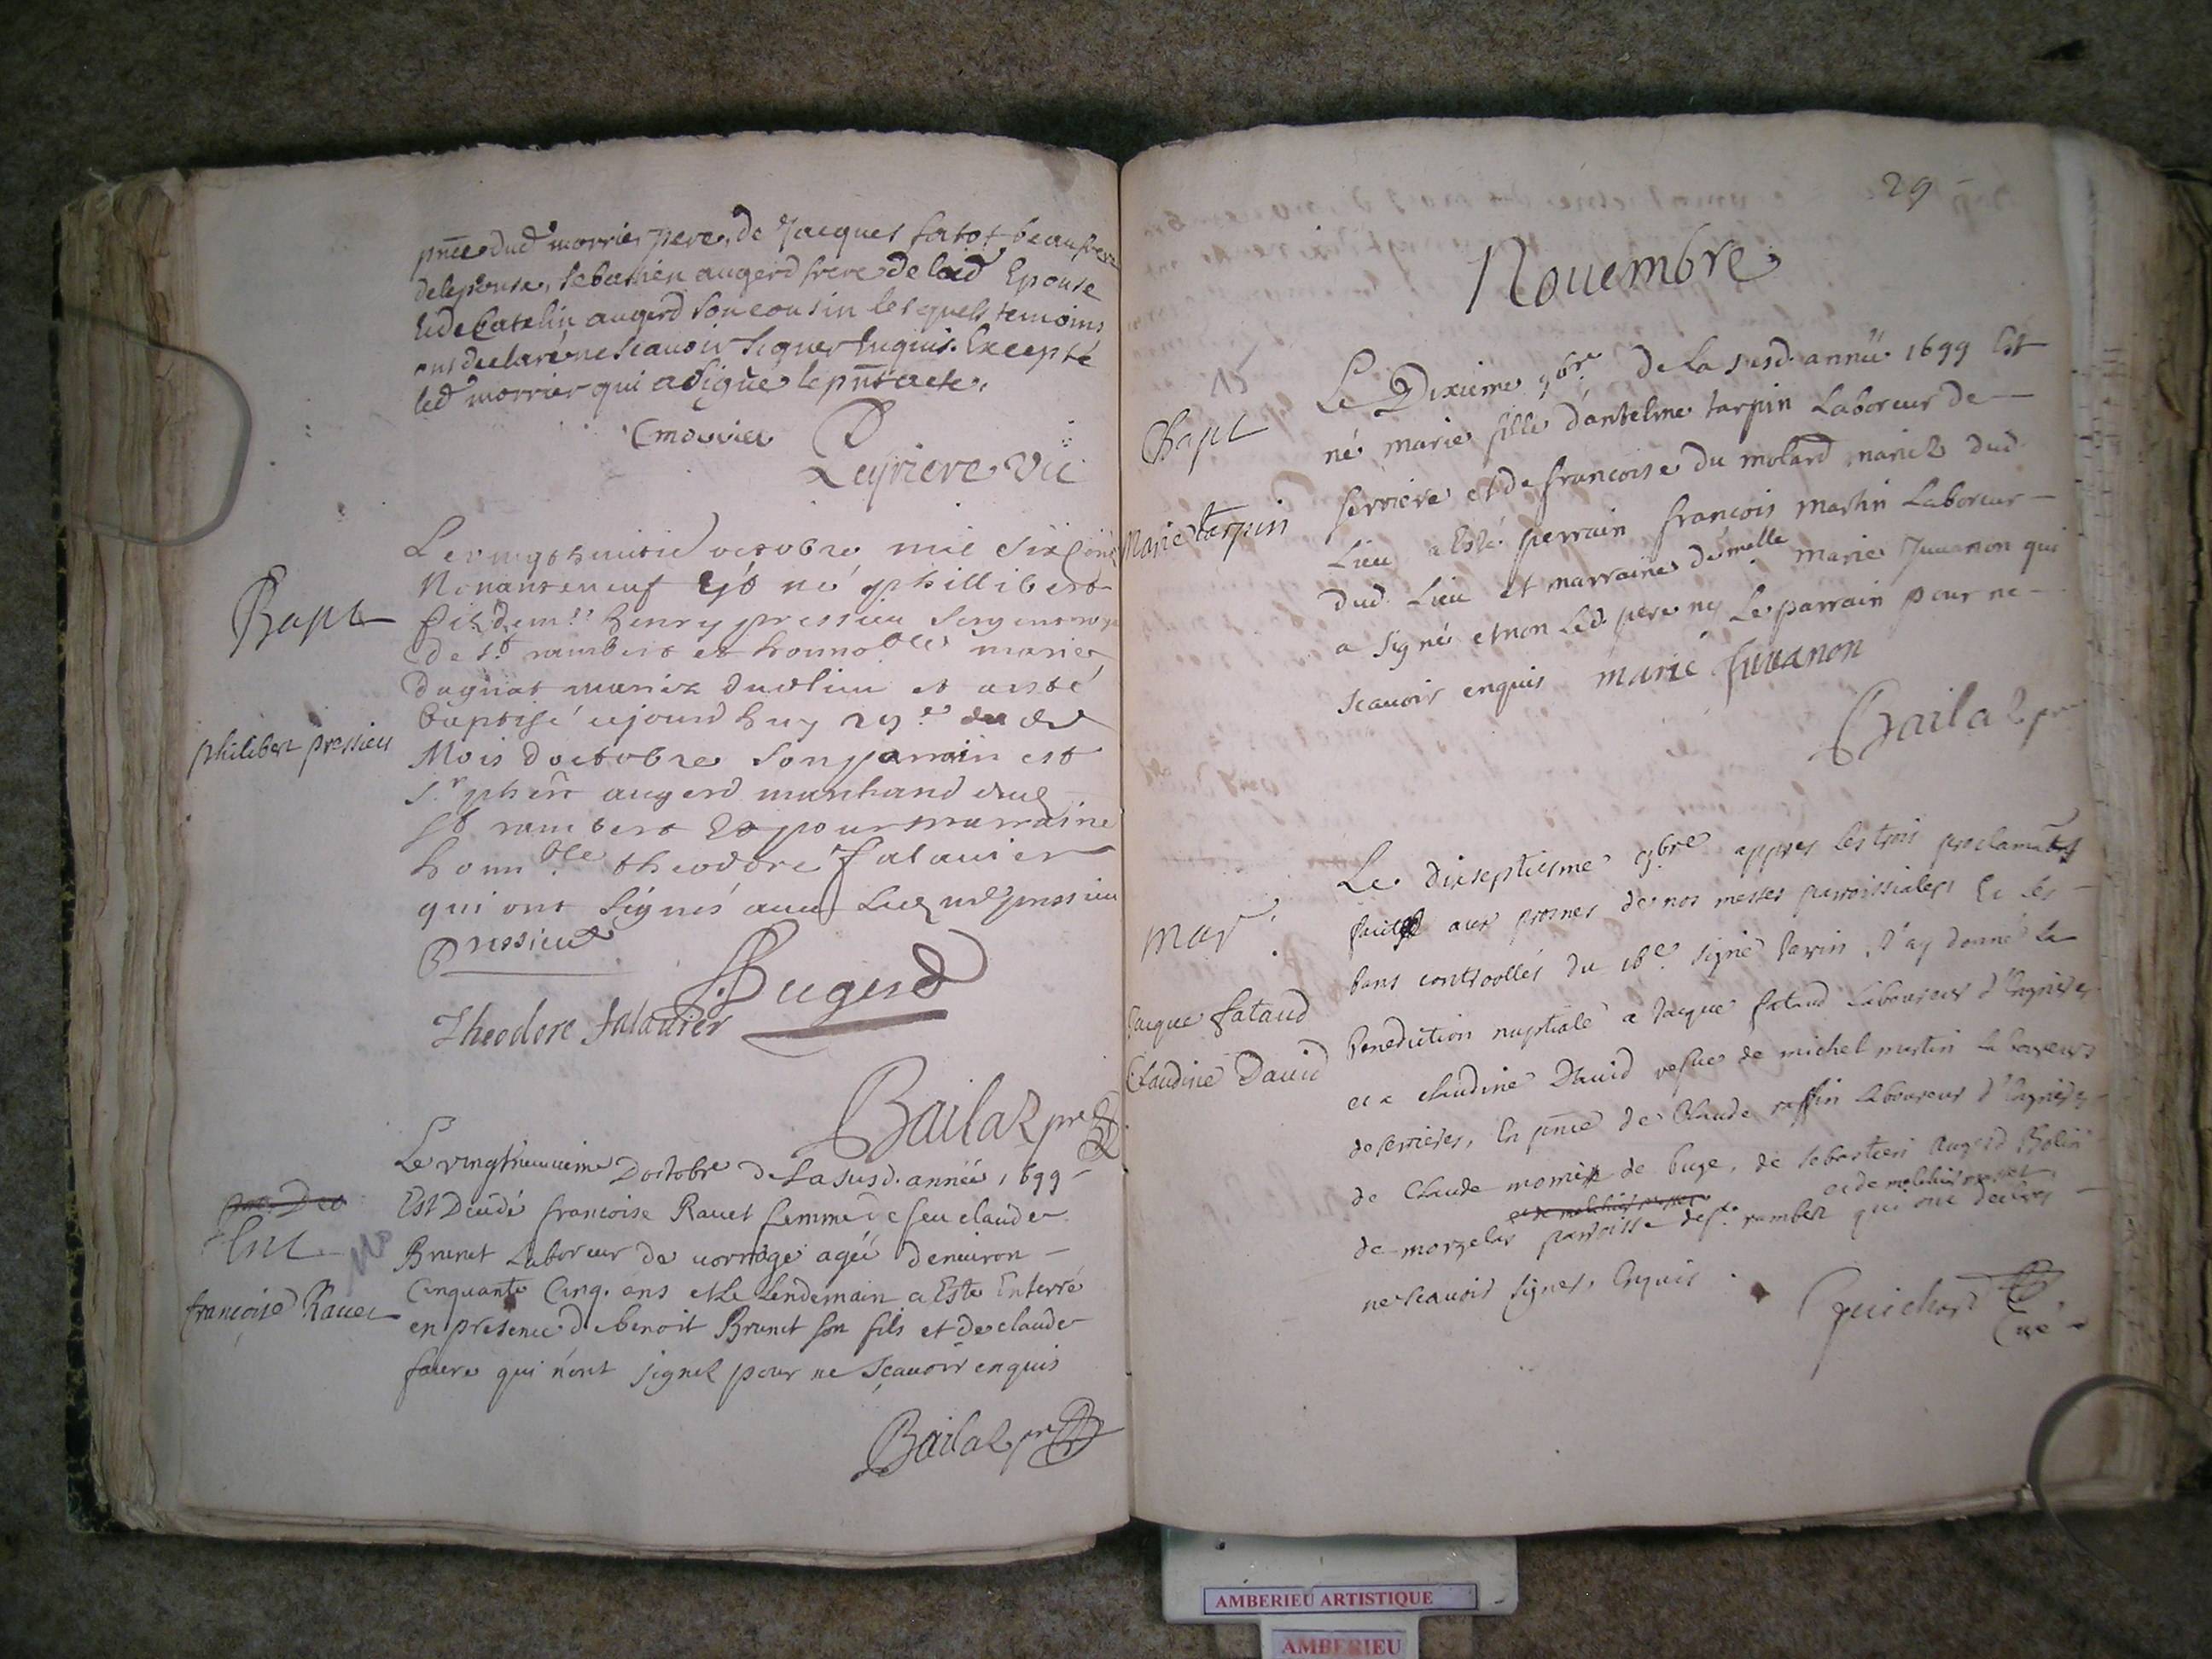 pnce dud morrier pere, de Jacques fatot beaufrere
delepouse, sebastien augerd frere de lad Epouse
Et de Catelin augerd son cousin lesquels temoins
ont declaré ne scauoir signer Enquis. Excepté
led morrier qui a signé le pnt acte.
Cmorrier
Leyriere vic
Bapt
philibert pressieu
Le vingt huitie octobre mil six cent
Nonante neuf Est né phillibert
fils dem.r henry pressieu sergent
de st rambert et honno.ble marie
dagnat mariez dudlieu et a esté
baptisé cejourdhuy 29.e du d
Mois doctobre son parrain est
s.r phēr augerd marchand dud
st rambert Et pour marraine
honn.ble theodore falauier
qui ont signés auec led pressieu
Pressieu
Augerd
Theodore falauier
Bailaz pre
Ent
françoise Rauet
Le vingtneuuieme Doctobre de La susd. année 1699
Est Decedé francoise Rauet femme de feu claude
Brunet Laboreur de uorrage ageé denuiron
Cinquante Cinq. ans et Le Lendemain a Esté Enterré
en presence de benoit Brunet son fils et de claude
faure qui n'ont signez pour ne sçauoir enquis
Bailaz pre
29
Nouembre
15
Bapt
Marie tarpin
Le Dixieme 9bre de La susd. année 1699 Est
né marie fille d'antelme tarpin Laboreur de
serriere et de francoise du molard mariez dud
Lieu a Esté perrain francois martin Laboreur
dud. Lieu et marraine demelle marie Juuanon qui
a signé et non Led. pere ny Le parrain pour ne
scauoir enquis marie Juuanon
Bailaz pre
mar.
Jacque fataud
Claudine Dauid
Le dixseptiesme 9bre appres les trois proclamāts
faites aux prosnes de nos messes parroissiales Et les
bans controollés du 16e signé Jarrin J'ay donné la
benediction nuptiale a Jacque fataud Laboureur d'Engrieres
et a claudine Dauid vefue de michel martin laboureur
de serrieres, En pnce de Claude raffin laboureur d'Engrieres
de Claude momier de buge, de sebastien augerd Bolin
et de melchior et de melchior
de morgelas parroisse de st. rambert qui ont declaré
ne scauoir signer, Enquis.
Guichard
Cure
AMBERIEU ARTISTIQUE
AMBERIEU